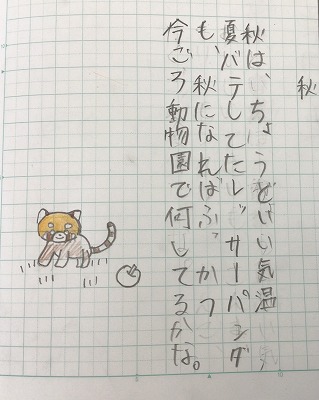 秋
秋は、ちょうどいい気温
夏バテしてたレッサーパンダ
も、秋になればぶっかつ
今ごろ動物園で何してるかな。